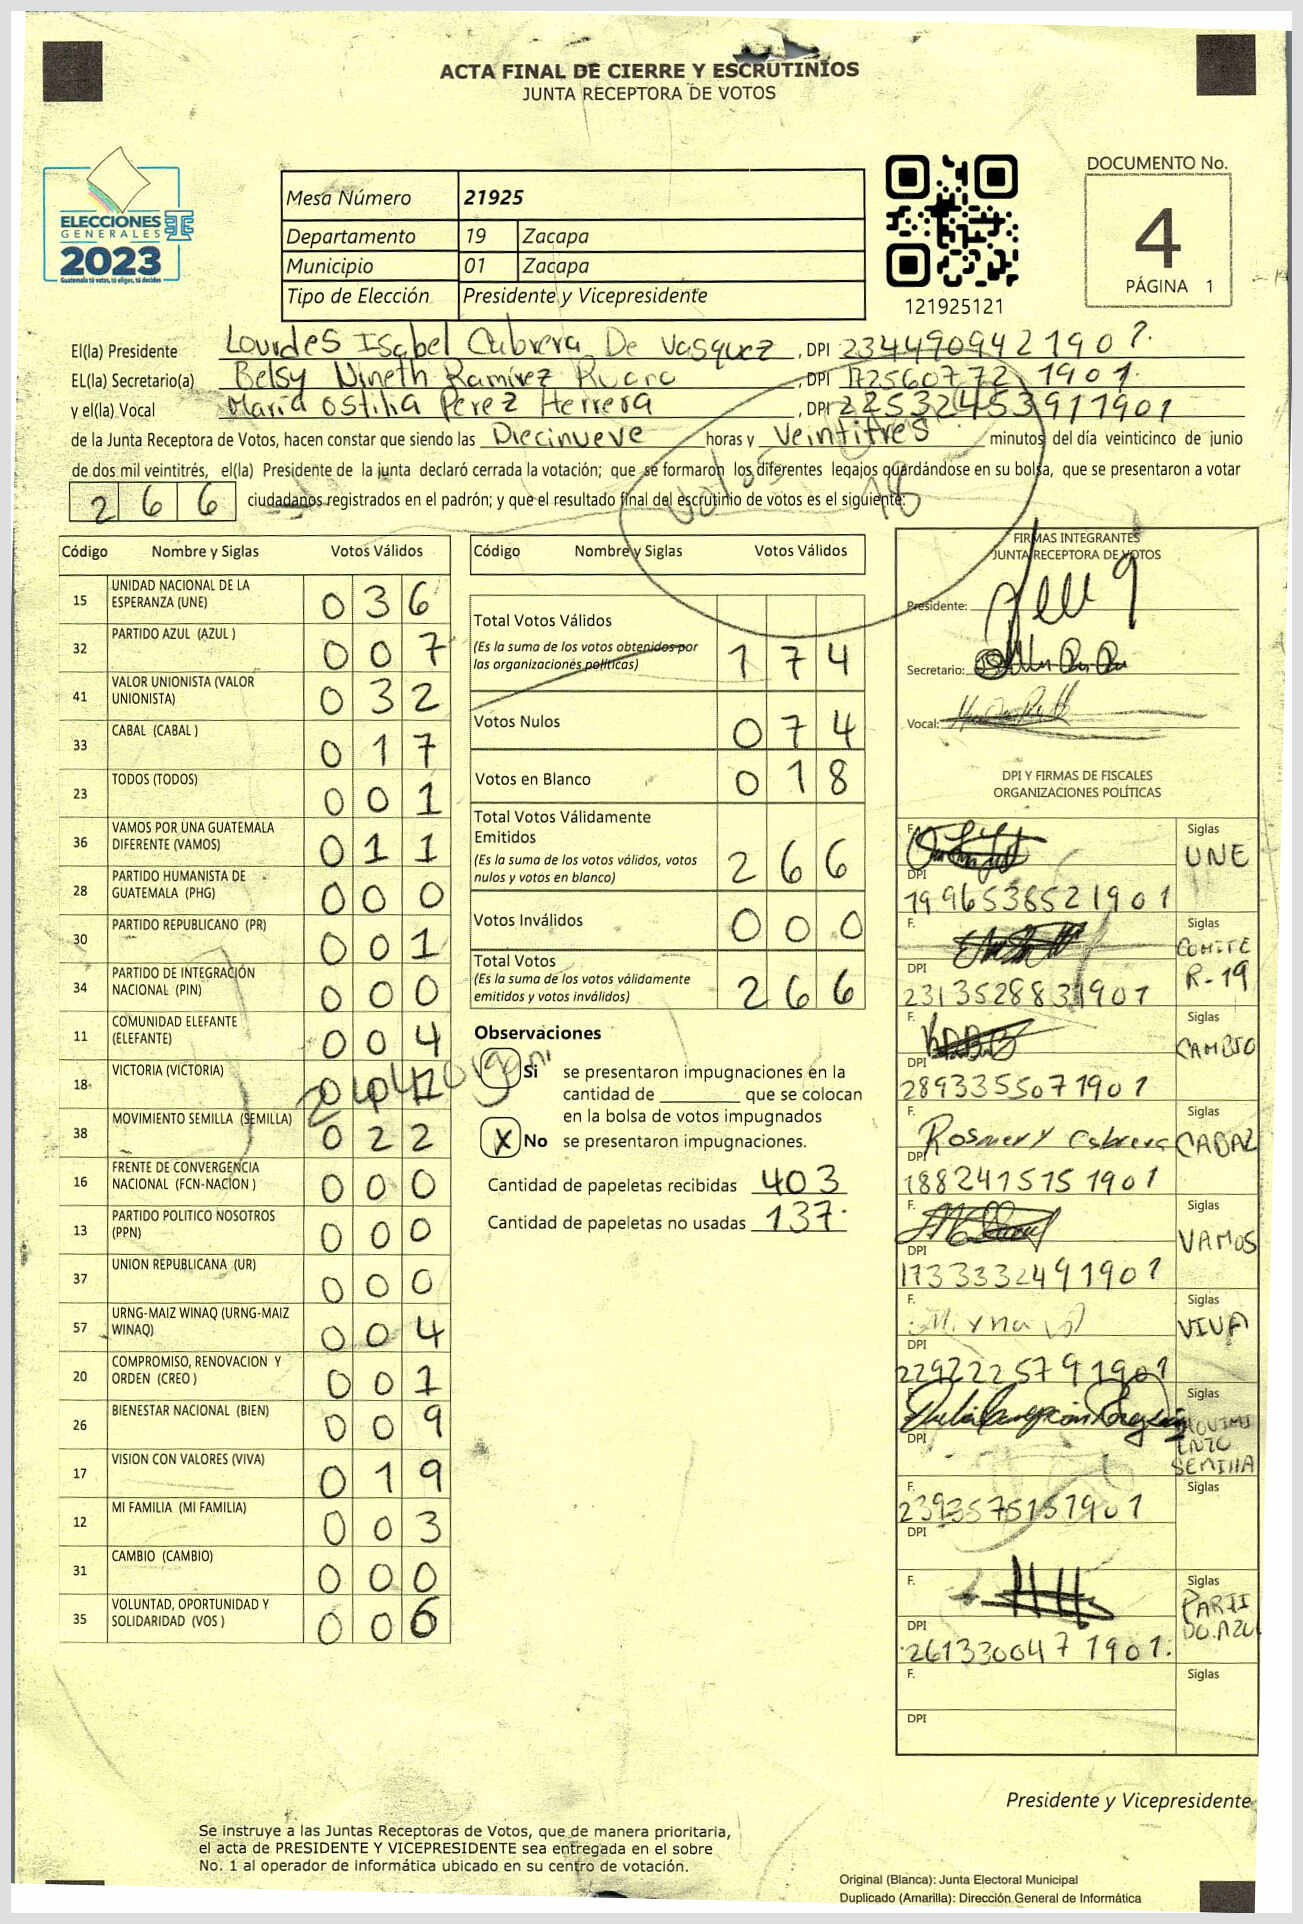 ACTA FINAL DE CIERRE Y ESCRUTINIOS
JUNTA RECEPTORA DE VOTOS
ELECCIONES
GENERALES
2023
Guatemala tú votas, tú eliges, tú decides
Mesa Número 21925
Departamento 19 Zacapa
Municipio 01 Zacapa
Tipo de Elección Presidente y Vicepresidente
121925121
DOCUMENTO No.
4
PÁGINA 1
El(la) Presidente Lourdes Isabel Cabrera De Vasquez, DPI 2344909421901.
EL(la) Secretario(a) Belsy Nineth Ramírez, DPI 1725607721901.
y el(la) Vocal María Ostilia Perez Herrera, DPI
de la Junta Receptora de Votos, hacen constar que siendo las Diecinueve horas y Veintitres minutos del día veinticinco de junio
de dos mil veintitrés, el(la) Presidente de la junta declaró cerrada la votación; que se formaron los diferentes legajos guardándose en su bolsa, que se presentaron a votar
266 ciudadanos registrados en el padrón; y que el resultado final del escrutinio de votos es el siguiente:
votos 18
Código Nombre y Siglas Votos Válidos
15 UNIDAD NACIONAL DE LA ESPERANZA (UNE) 036
32 PARTIDO AZUL (AZUL ) 007
41 VALOR UNIONISTA (VALOR UNIONISTA) 032
33 CABAL (CABAL ) 017
23 TODOS (TODOS) 001
36 VAMOS POR UNA GUATEMALA DIFERENTE (VAMOS) 011
28 PARTIDO HUMANISTA DE GUATEMALA (PHG) 000
30 PARTIDO REPUBLICANO (PR) 001
34 PARTIDO DE INTEGRACIÓN NACIONAL (PIN) 000
11 COMUNIDAD ELEFANTE (ELEFANTE) 004
18 VICTORIA (VICTORIA)
38 MOVIMIENTO SEMILLA (SEMILLA) 022
16 FRENTE DE CONVERGENCIA NACIONAL (FCN-NACION ) 000
13 PARTIDO POLITICO NOSOTROS (PPN) 000
37 UNION REPUBLICANA (UR) 000
57 URNG-MAIZ WINAQ (URNG-MAIZ WINAQ) 004
20 COMPROMISO, RENOVACION Y ORDEN (CREO ) 001
26 BIENESTAR NACIONAL (BIEN) 009
17 VISION CON VALORES (VIVA) 019
12 MI FAMILIA (MI FAMILIA) 003
31 CAMBIO (CAMBIO) 000
35 VOLUNTAD, OPORTUNIDAD Y SOLIDARIDAD (VOS ) 006
Código Nombre y Siglas Votos Válidos
Total Votos Válidos
(Es la suma de los votos obtenidos por
las organizaciones políticas) 174
Votos Nulos 074
Votos en Blanco 018
Total Votos Válidamente
Emitidos
(Es la suma de los votos válidos, votos
nulos y votos en blanco) 266
Votos Inválidos 000
Total Votos
(Es la suma de los votos válidamente
emitidos y votos inválidos) 266
Observaciones
Si se presentaron impugnaciones en la
cantidad de ________ que se colocan
en la bolsa de votos impugnados
X No se presentaron impugnaciones.
Cantidad de papeletas recibidas 403
Cantidad de papeletas no usadas 137
FIRMAS INTEGRANTES
JUNTA RECEPTORA DE VOTOS
Presidente:
Secretario:
Vocal:
DPI Y FIRMAS DE FISCALES
ORGANIZACIONES POLÍTICAS
F. Siglas
UNE
DPI
1996538521901
F. Siglas
COMITE
R-19
DPI
2313528831901
F. Siglas
CAMBIO
DPI
2893355071901
F. Siglas
Rosmery Cabrera
DPI
1882415151901
F. Siglas
VAMOS
DPI
1733332491901
F. Siglas
VIVA
DPI
2292225791901
F.
MOVIMI
ENTO
SEMILLA
DPI
F. Siglas
2393575151901
DPI
F. Siglas
PARTI
DO.AZUL
DPI
2613300471901.
F. Siglas
DPI
Presidente y Vicepresidente
Se instruye a las Juntas Receptoras de Votos, que de manera prioritaria,
el acta de PRESIDENTE Y VICEPRESIDENTE sea entregada en el sobre
No. 1 al operador de informática ubicado en su centro de votación.
Original (Blanca): Junta Electoral Municipal
Duplicado (Amarilla): Dirección General de Informática